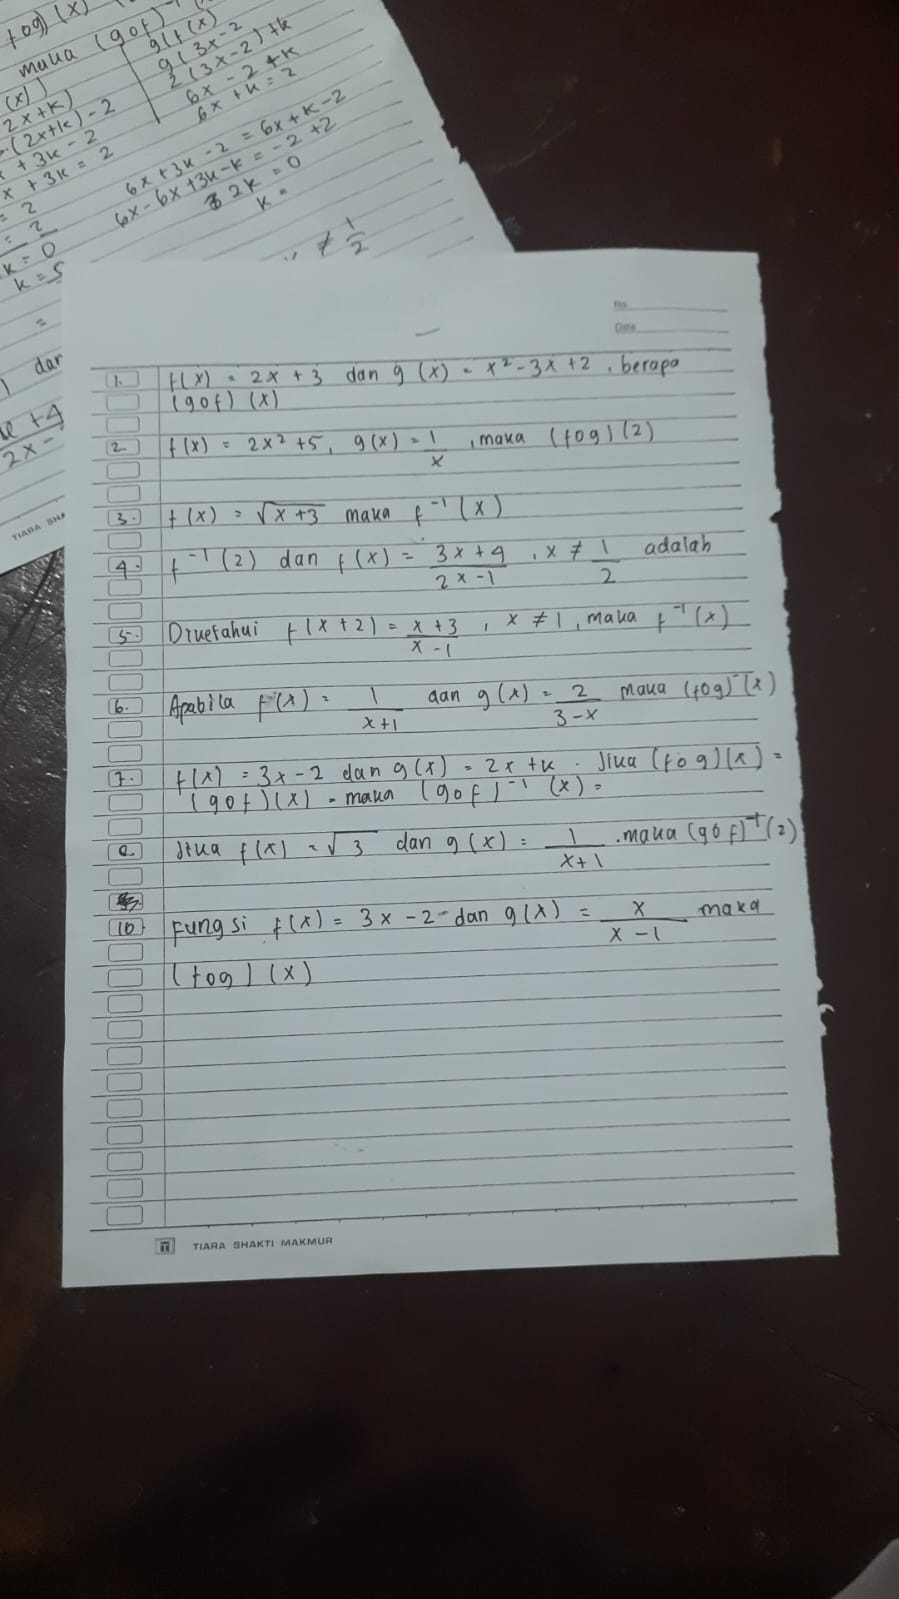 fog) (x)
maka (gof)
g(f(x)
g(3x-2
2(3x-2)+k
6x - 2 + k
6x + k = 2
(x))
2x+k)
(2x+k) - 2
+ 3k - 2
x + 3k = 2
= 2
= 2
k = 0
k = 5
6x + 3k - 2 = 6x + k - 2
6x - 6x + 3k - k = -2 + 2
2k = 0
k =
≠ 1/2
=
dan
2x -
TIARA SHA
No.
Date
1. f(x) = 2x + 3 dan g(x) = x² - 3x + 2 , berapa
(gof) (x)
2. f(x) = 2x² + 5, g(x) = 1/x , maka (fog) (2)
3. f(x) = √x+3 maka f⁻¹(x)
4. f⁻¹(2) dan f(x) = 3x+4/2x-1 , x ≠ 1/2 adalah
5. Diketahui f(x+2) = x+3/x-1 , x ≠ 1, maka f⁻¹(x)
6. Apabila f(x) = 1/x+1 dan g(x) = 2/3-x maka (fog)⁻(x)
7. f(x) = 3x-2 dan g(x) = 2x+k . Jika (fog)(x) =
(gof)(x) = maka (gof)⁻¹(x) =
Jika f(x) = √3 dan g(x) = 1/x+1 . maka (gof)⁻¹(2)
10 Fungsi f(x) = 3x - 2 dan g(x) = x/x-1 maka
(fog) (x)
TIARA SHAKTI MAKMUR